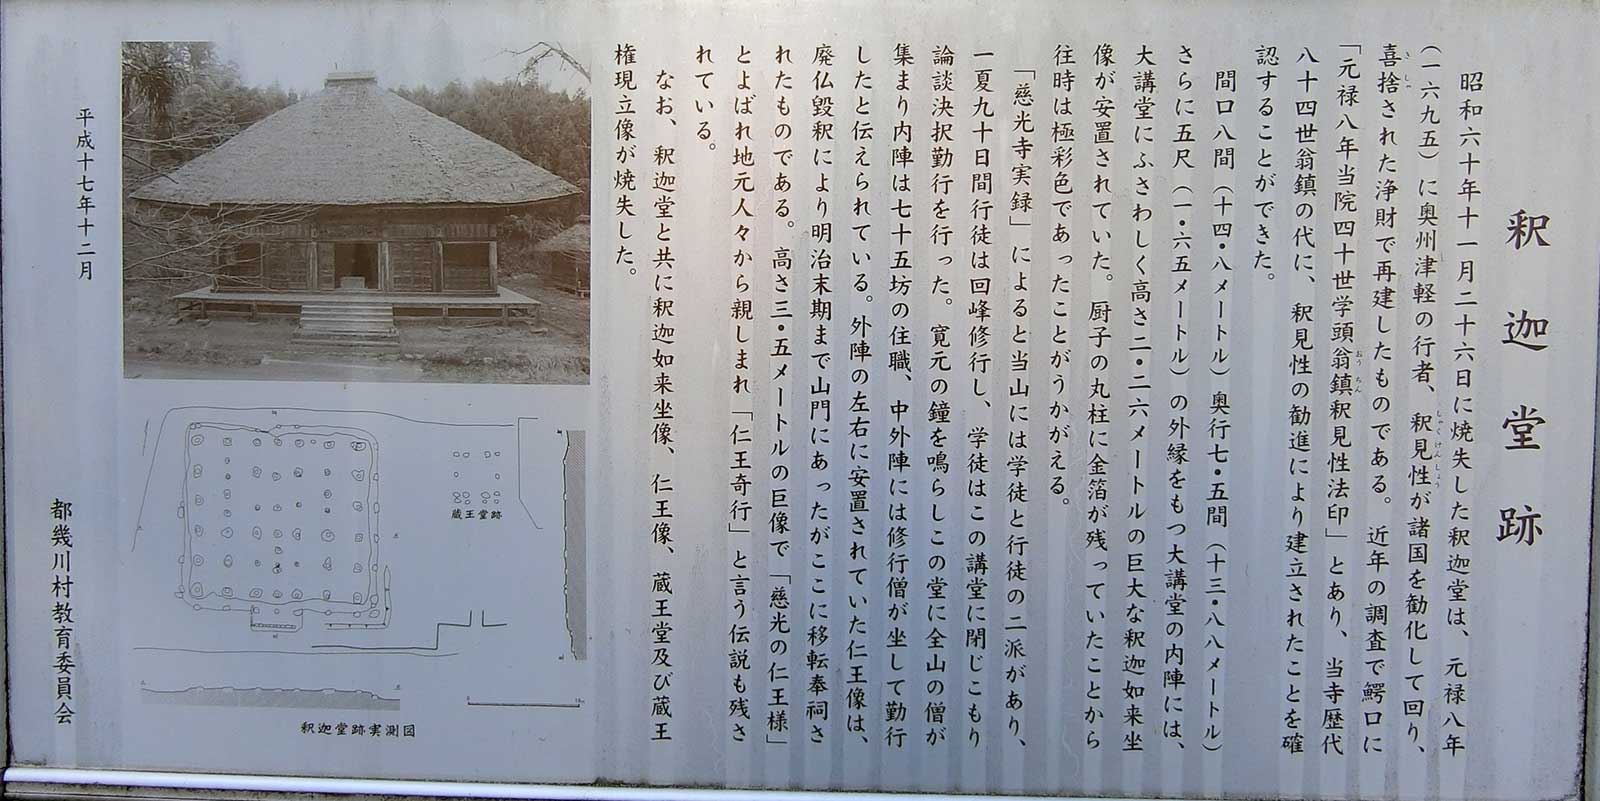 釈迦堂跡
昭和六十年十一月二十六日に焼失した釈迦堂は、元禄八年
(一六九五)に奥州津軽の行者、釈見性が諸国を勧化して回り、
喜捨された浄財で再建したものである。近年の調査で鰐口に
「元禄八年当院四十世学頭翁鎮釈見性法印」とあり、当寺歴代
八十四世翁鎮の代に、釈見性の勧進により建立されたことを確
認することができた。
間口八間(十四・八メートル)奥行七・五間(十三・八八メートル)
さらに五尺(一・六五メートル)の外縁をもつ大講堂の内陣には、
大講堂にふさわしく高さ二・二六メートルの巨大な釈迦如来坐
像が安置されていた。厨子の丸柱に金箔が残っていたことから
往時は極彩色であったことがうかがえる。
「慈光寺実録」によると当山には学徒と行徒の二派があり、
一夏九十日間行徒は回峰修行し、学徒はこの講堂に閉じこもり
論談決択勤行を行った。寛元の鐘を鳴らしこの堂に全山の僧が
集まり内陣は七十五坊の住職、中外陣には修行僧が坐して勤行
したと伝えられている。外陣の左右に安置されていた仁王像は、
廃仏毀釈により明治末期まで山門にあったがここに移転奉祠さ
れたものである。高さ三・五メートルの巨像で「慈光の仁王様」
とよばれ地元人々から親しまれ「仁王奇行」と言う伝説も残さ
れている。
なお、釈迦堂と共に釈迦如来坐像、仁王像、蔵王堂及び蔵王
権現立像が焼失した。
蔵王堂跡
釈迦堂跡実測図
平成十七年十二月
都幾川村教育委員会